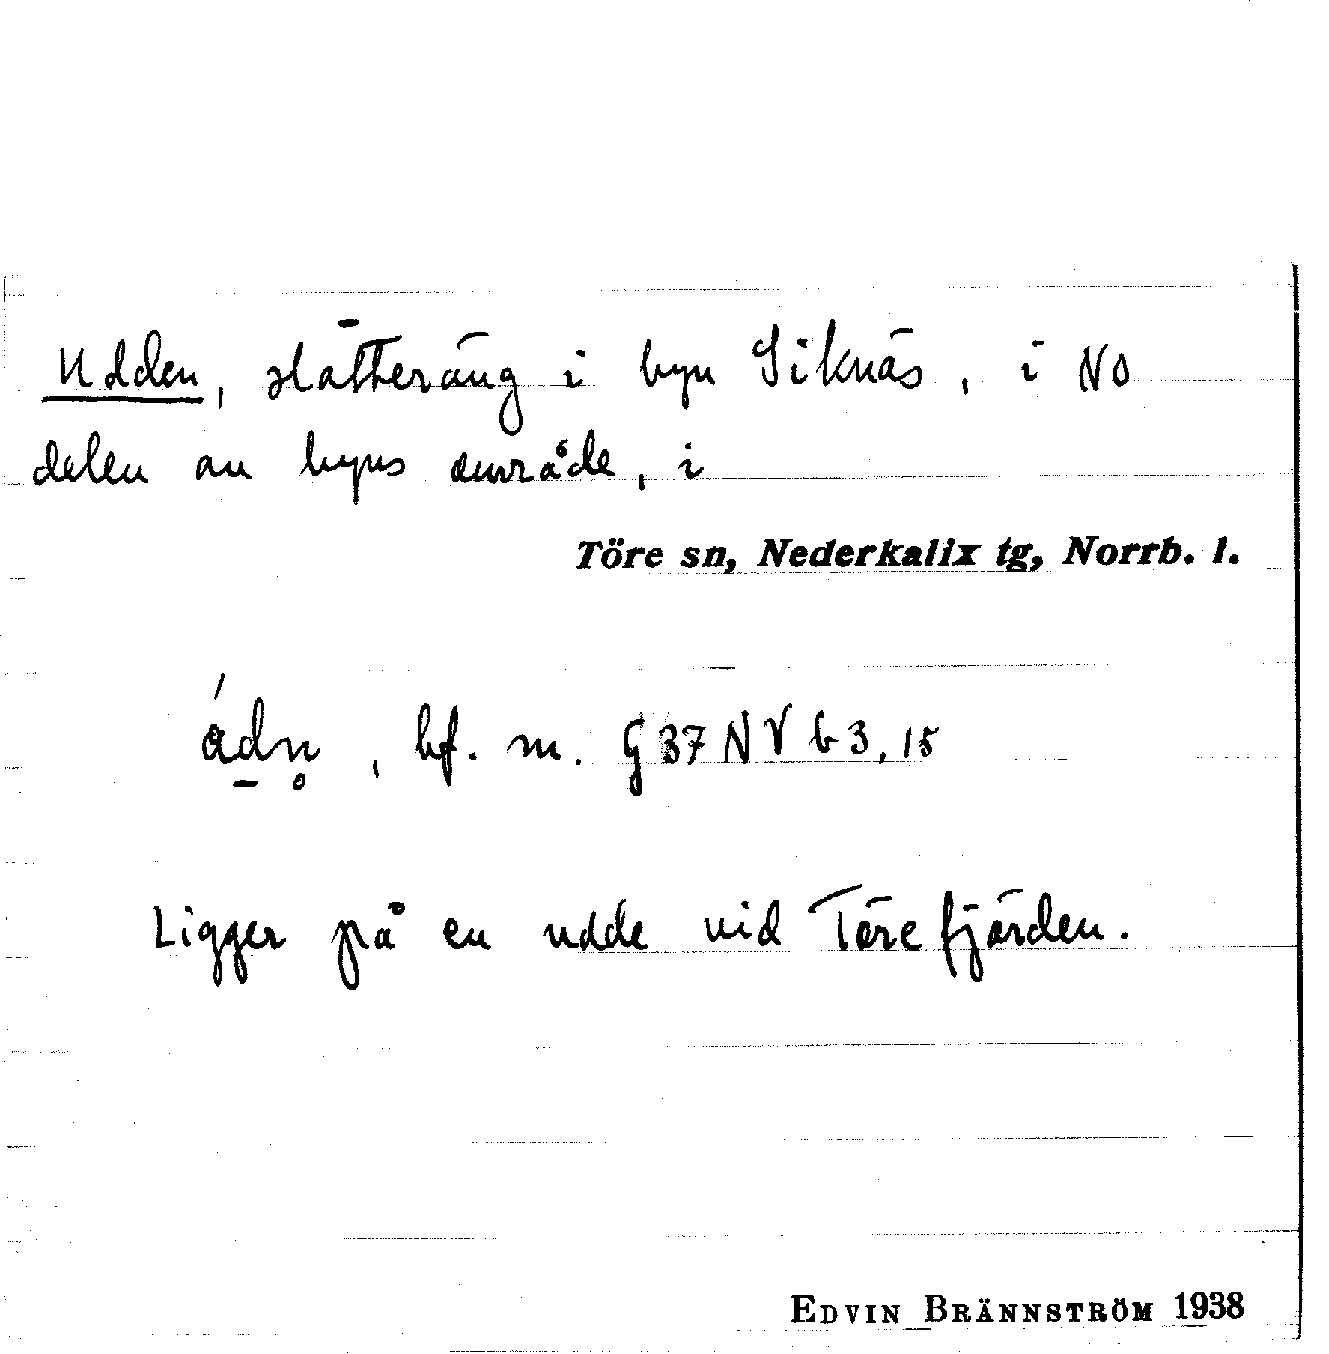 Udden, slåtteräng i byn Siknäs, i NO
delen av byns område, i
Töre sn, Nederkalix tg, Norrb. l.
ádn̥, bf. m. G37NVb3,15
Ligger på en udde vid Törefjärden.
EDVIN BRÄNNSTRÖM 1938